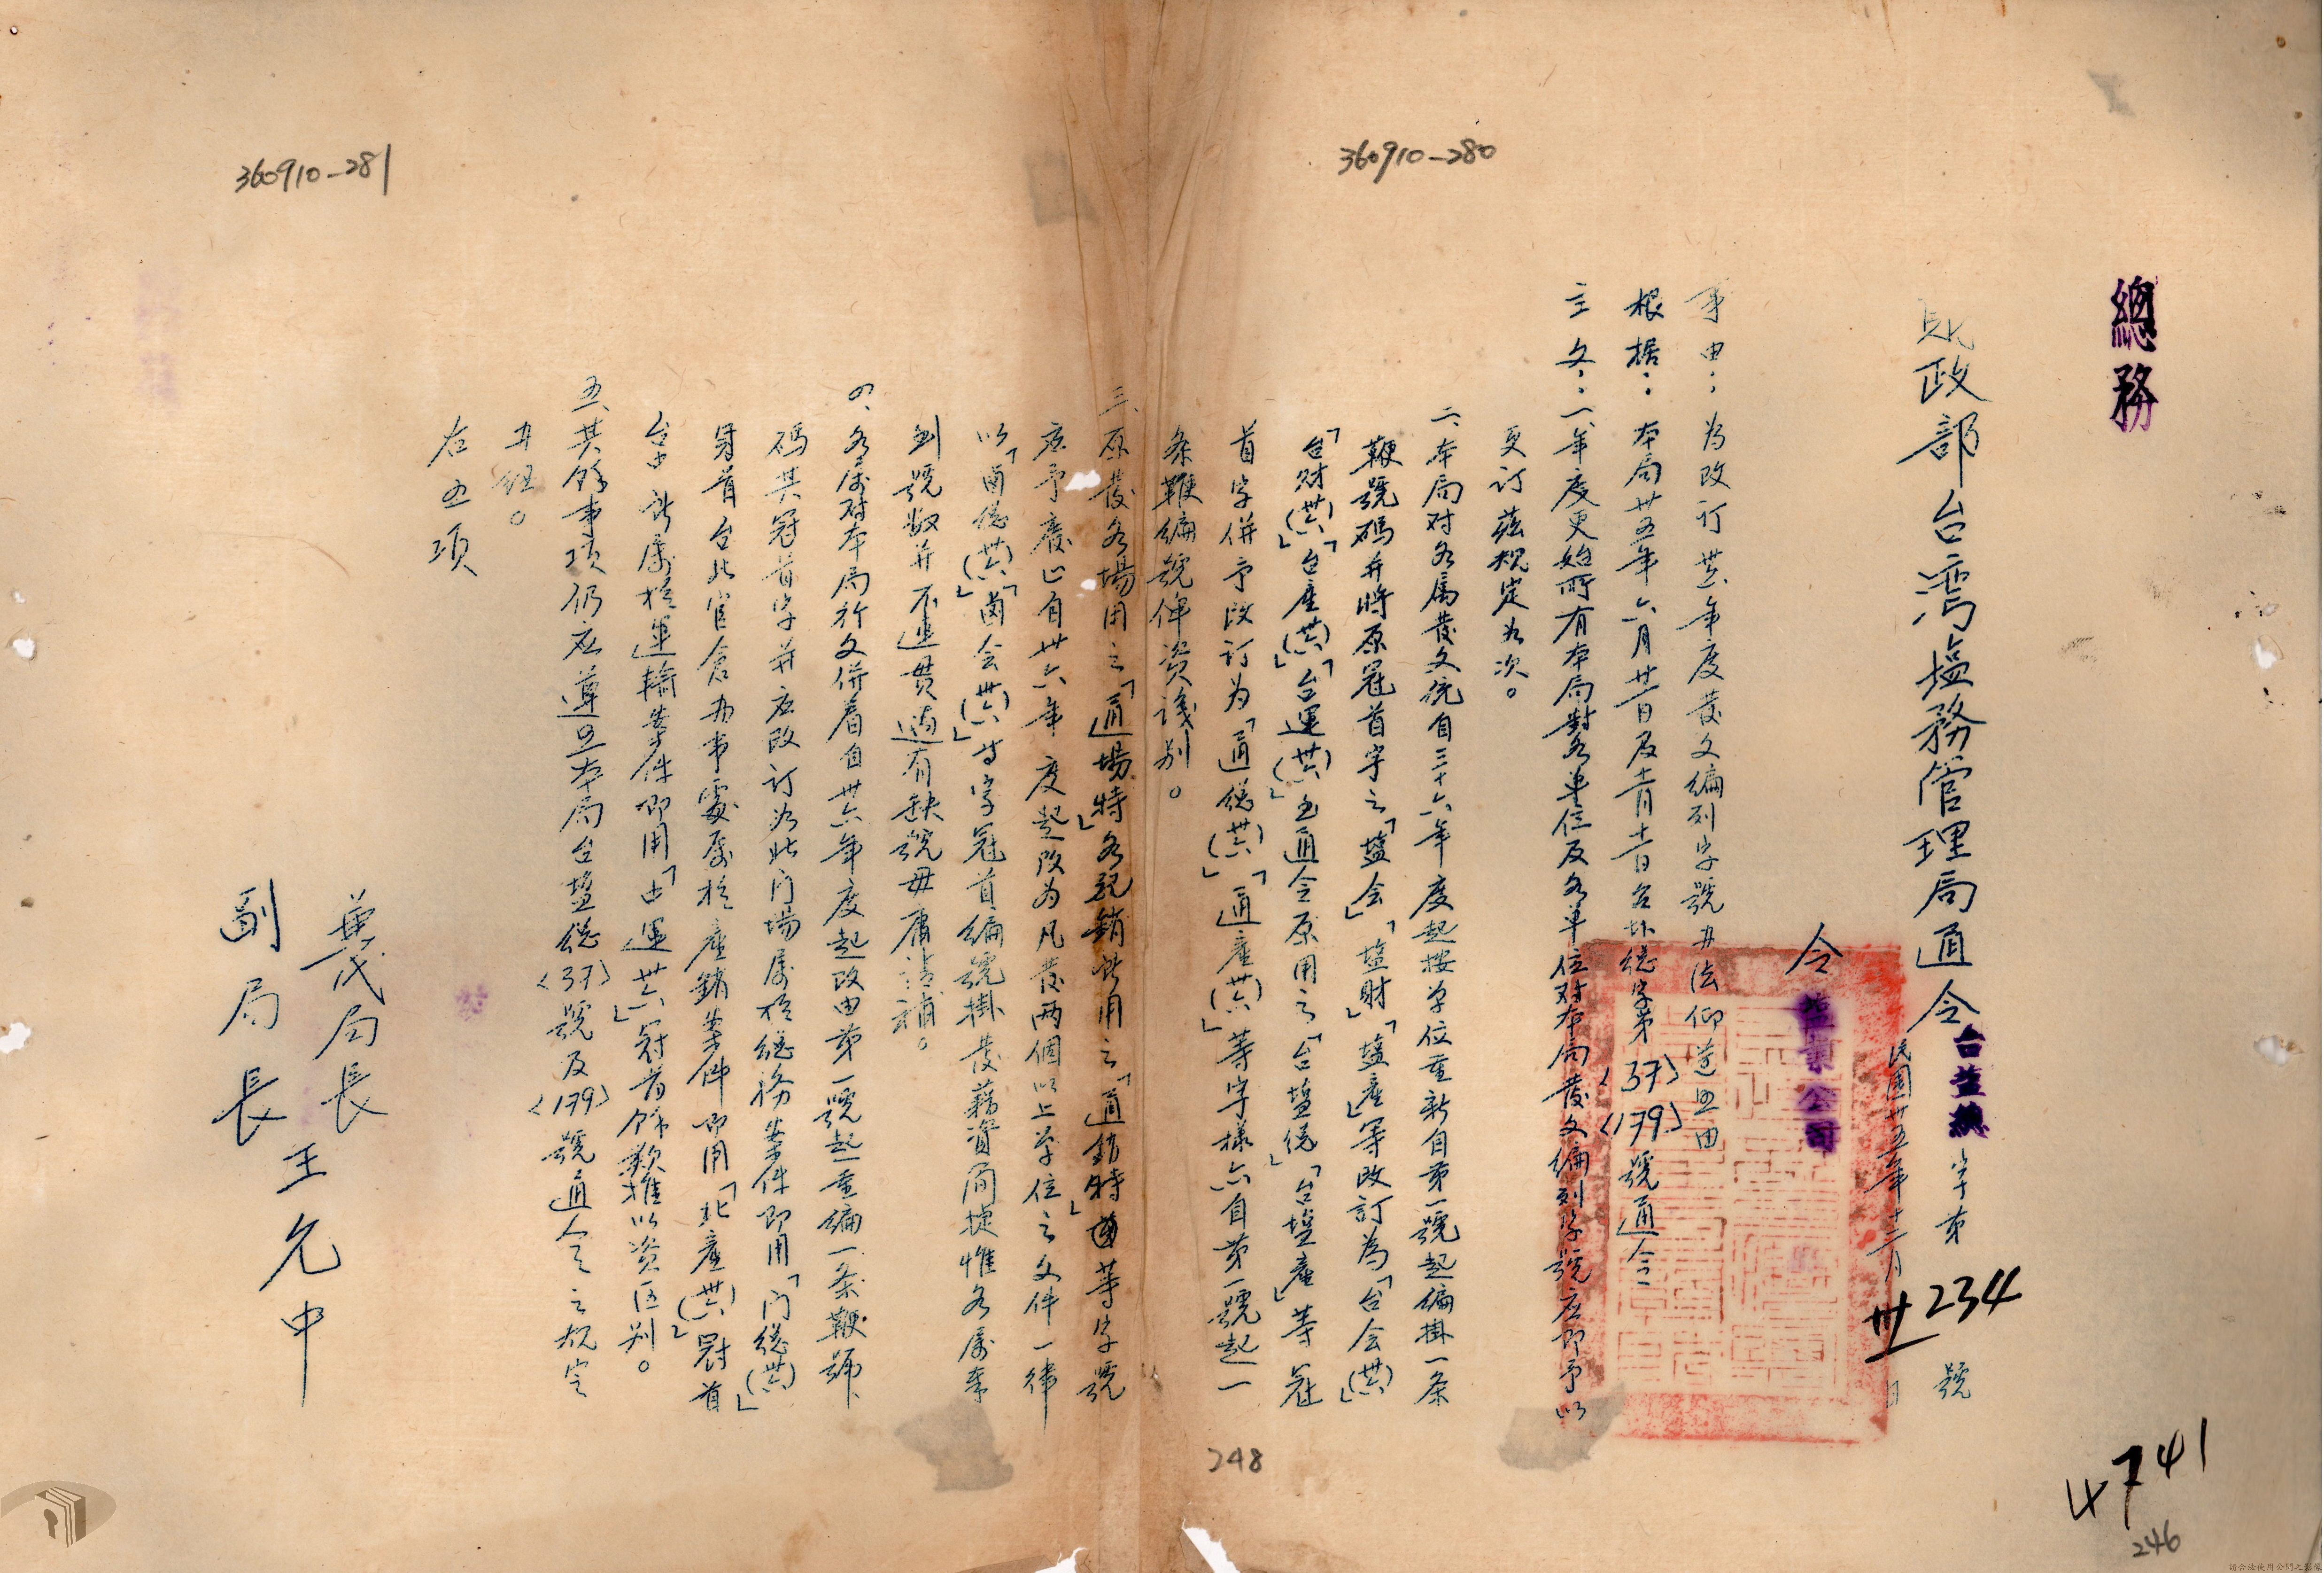 總務
財政部台湾塩務管理局通令
台盐總字第234號
民國卅五年十二月卅一日
令 塩業公司
事由：为改订卅六年度發文编列字號办法仰遵照由
根据：本局卅五年六月廿一日及十一月十一日台盐總字第〈37〉〈179〉號通令
主文：一、年度更始所有本局對各單位及各单位对本局發文编列字號应即予以
更订兹规定为次。
二、本局对各属發文統自三十六年度起按单位重新自第一號起编掛一条
鞭號码并將原冠首字之「塩会」「塩財」「塩產」等改訂為「台会(卅六)」
「台财(卅六)」「台產(卅六)」「台運(卅六)」至通令原用之「台塩總」「台塩產」等冠
首字併予改订为「通總(卅六)」「通產(卅六)」等字樣亦自第一號起一
条鞭编號俾资識别。
三、原發各場用之「通場特」各配銷所用之「通銷特」等字號
应予廢止自卅六年度起改为凡發两個以上单位之文件一律
以「通總(卅六)」「通会(卅六)」等字冠首编號掛發藉資簡捷惟各属奉
到號数并不連贯遇有缺號毋庸請補。
四、各属对本局行文併着自卅六年度起改由第一號起重编一条鞭號
码其冠首字并应改订为北门場属於總務案件即用「门總(卅六)」
冠首台北官倉办事處属於產銷案件即用「北產(卅六)」冠首
台中所属於運輸案件即用「中運(卅六)」冠首餘類推以资区别。
五、其餘事項仍应遵照本局台塩總〈37〉號及〈179〉號通令之规定
办理。
右五项
兼代局長
副局長王允中
360910-280
360910-281
248
4741
246
請合法使用公開之影像